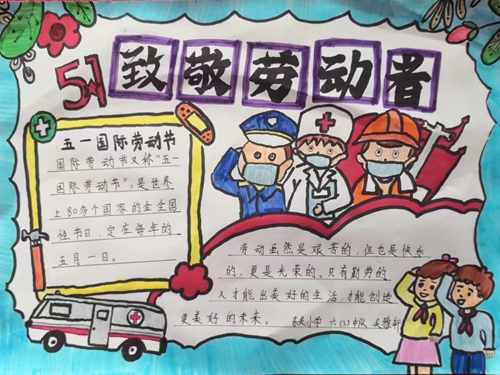 51
致敬劳动者
五一国际劳动节
国际劳动节又称“五一
国际劳动节”,是世界
上80多个国家的全国
性节日,定在每年的
五月一日。
劳动虽然是艰苦的,但也是快乐
的,更是光荣的,只有勤劳的
人才能出美好的生活,才能创造
更美好的未来。 小学 六(3)中队